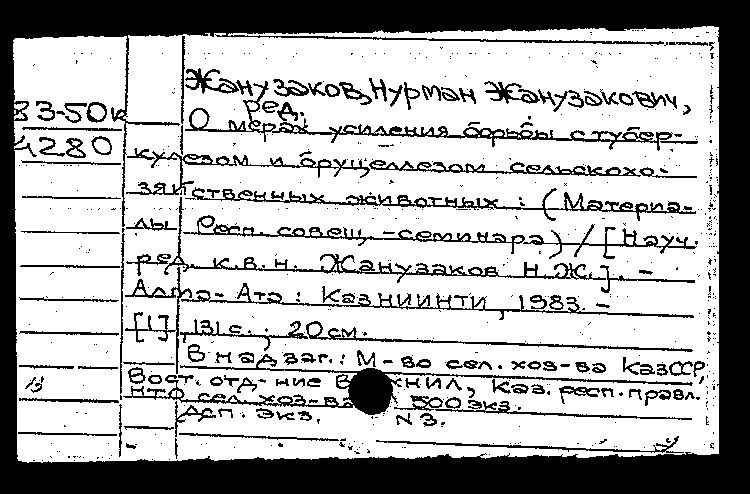 Жанузаков, Нурман Жанузакович,
ред.
83-50к
4280
О мерах усиления борьбы с тубер-
кулезом и бруцеллезом сельскохо-
зяйственных животных : (Материа-
лы Респ. совещ.-семинара) / [Науч.
ред. к.в.н. Жанузаков Н.Ж.]. –
Алма-Ата : КазНИИНТИ, 1983. –
[1], 131 с. ; 20 см.
В надзаг.: М-во сел. хоз-ва КазССР,
Вост. отд-ние ВАСХНИЛ, Каз. респ. правл.
НТО сел. хоз-ва 500 экз.
экз. N 3.